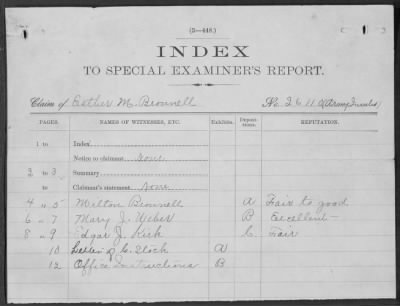 (3—448.)
INDEX
TO SPECIAL EXAMINER'S REPORT.
Claim of Esther M. Bronnell No. 2611 (Army Invalid)
PAGES. NAMES OF WITNESSES, ETC. Exhibits. Deposi-tions. REPUTATION.
1 to Index
Notice to claimant none
2 to 3 Summary
to Claimant's statement none
4 " 5 Milton Bronnell A Fair to good
6 " 7 Mary J. Weber B Excellent
8 " 9 Edgar J. Kirk C. Fair
10 Letter of C. Stock A
12 Office Instructions B